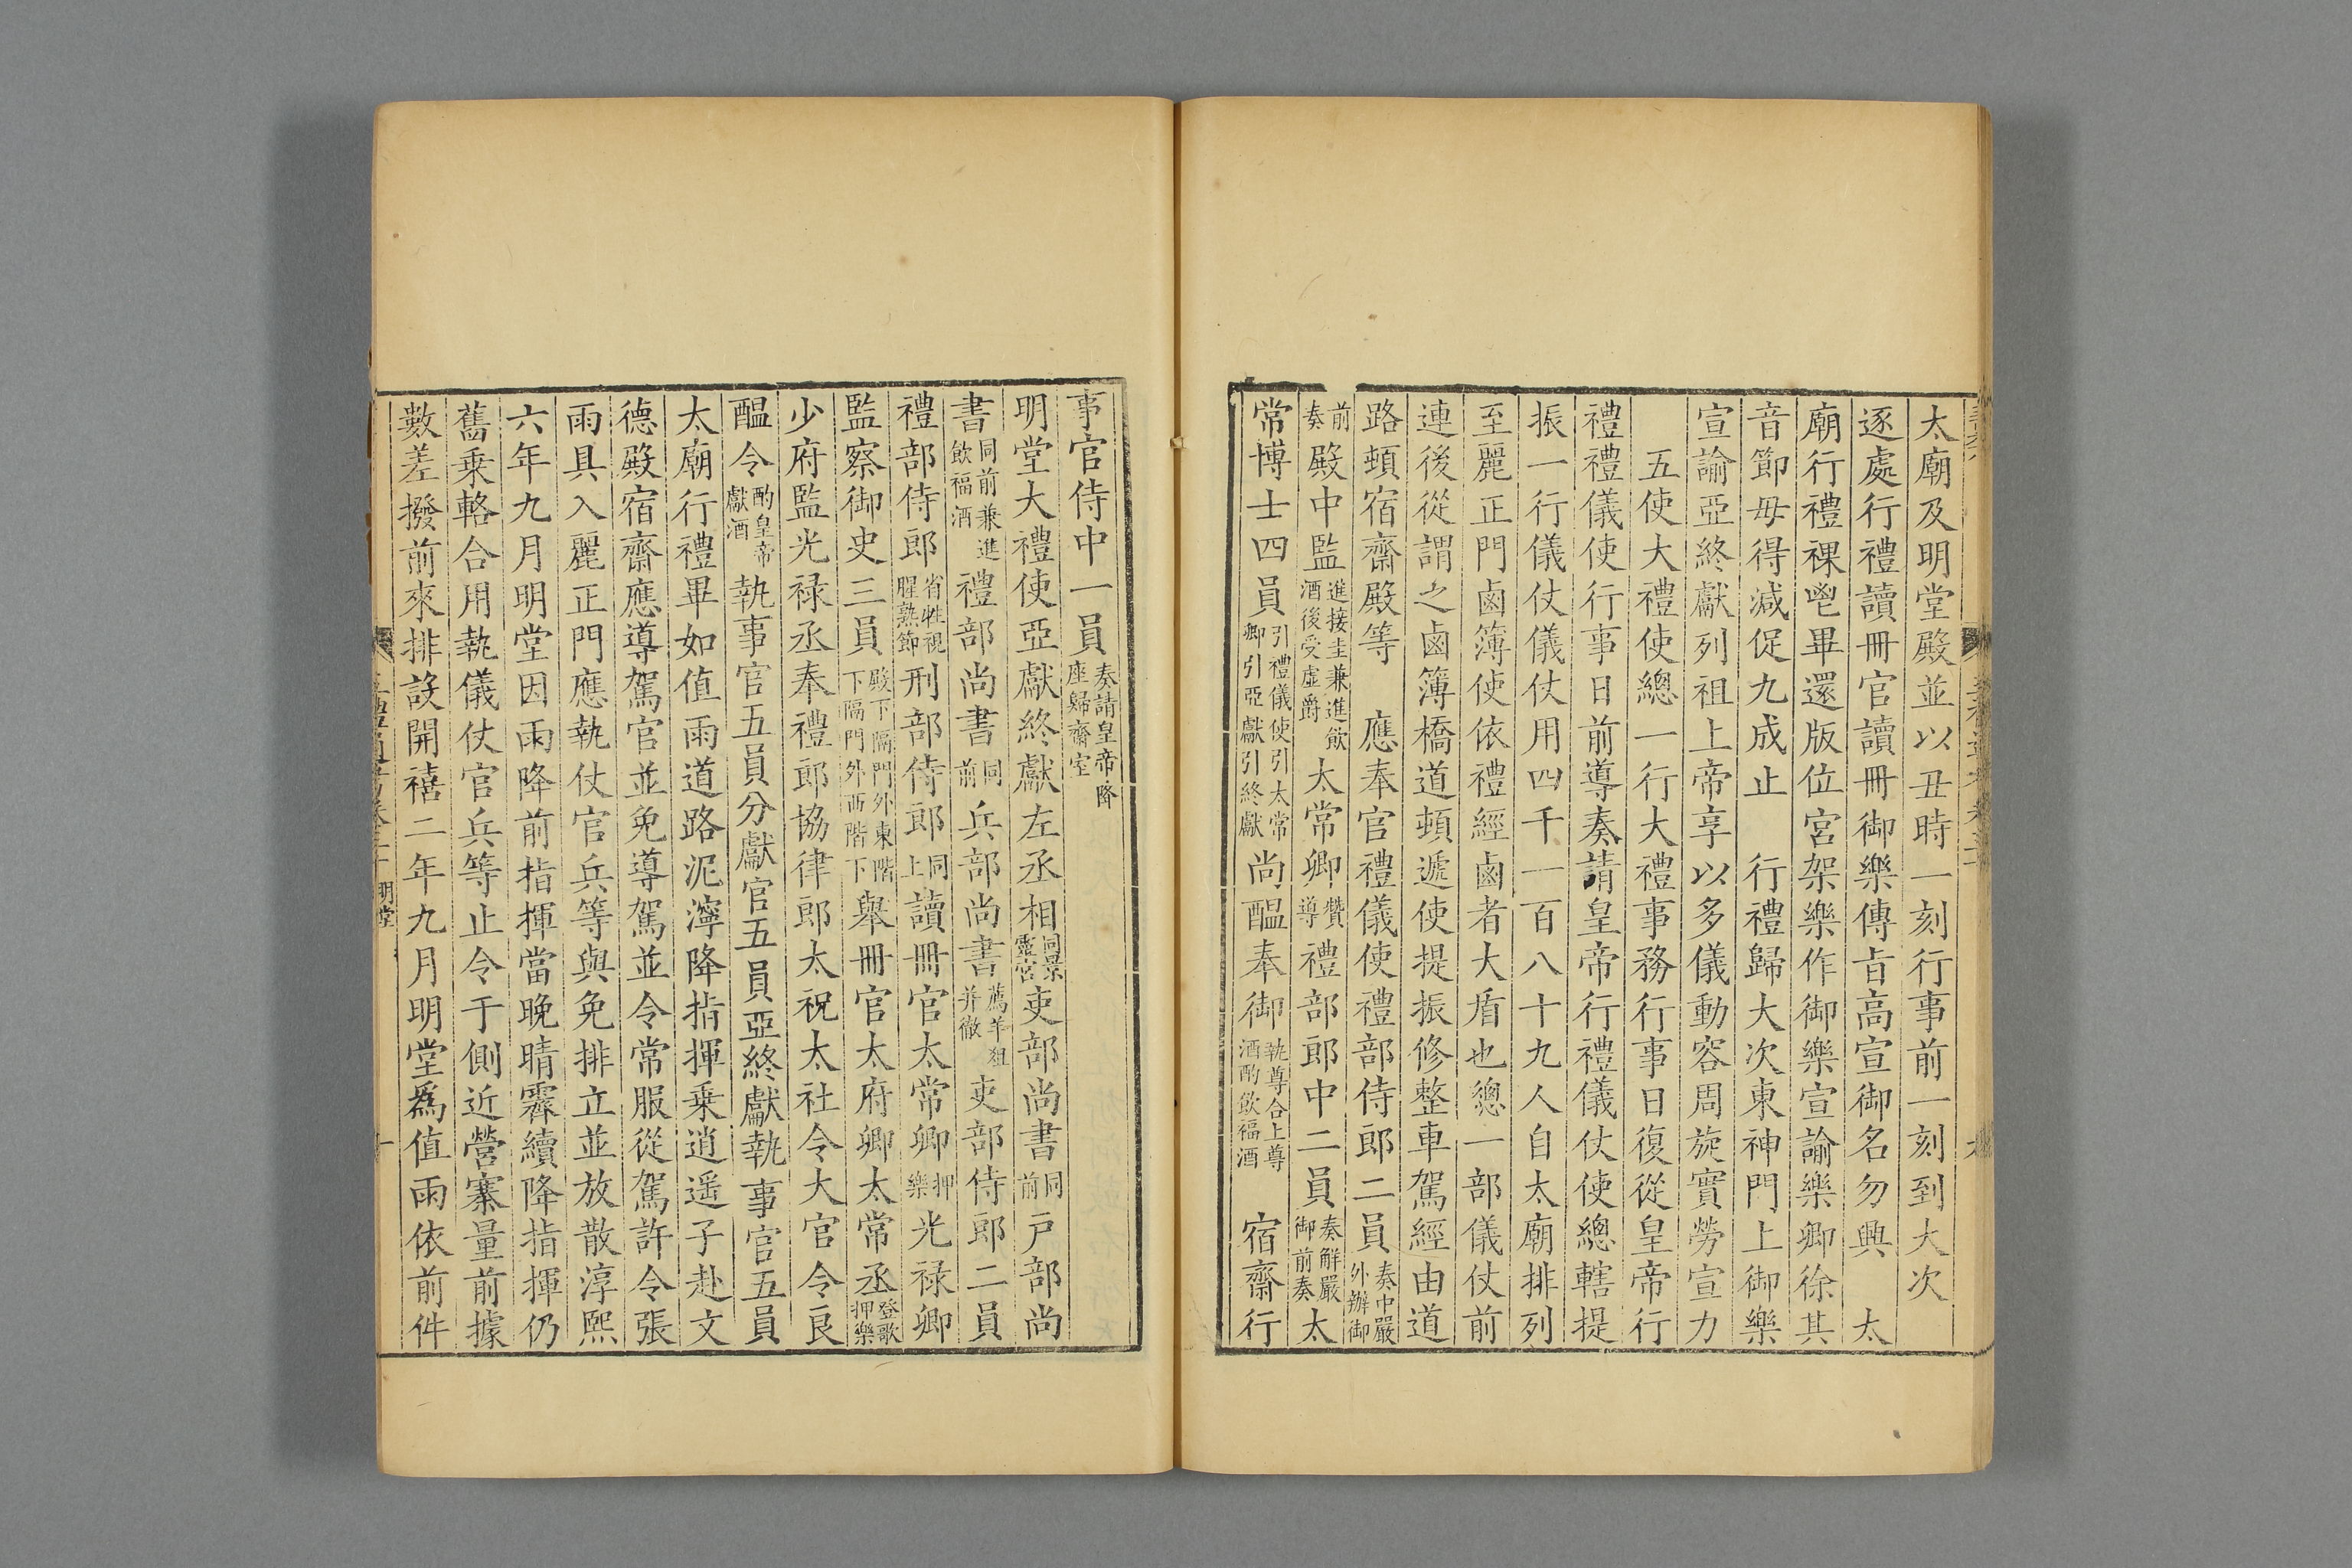 太廟及明堂殿並以丑時一刻行事前一刻到大次
逐處行禮讀冊官讀冊御樂傳旨高宣御名勿興　太
廟行禮祼鬯畢還版位宮架樂作御樂宣諭樂卿徐其
音節毋得減促九成止　行禮歸大次東神門上御樂
宣諭亞終獻列祖上帝享以多儀動容周旋實勞宣力
五使大禮使總一行大禮事務行事日復從皇帝行
禮禮儀使行事日前導奏請皇帝行禮儀仗使總轄提
振一行儀仗儀仗用四千一百八十九人自太廟排列
至麗正門鹵簿使依禮經鹵者大盾也總一部儀仗前
連後從謂之鹵簿橋道頓遞使提振修整車駕經由道
路頓宿齋殿等　應奉官禮儀使禮部侍郎二員奏中嚴外辦御
前奏殿中監進接圭兼進飲酒後受虛爵太常卿贊導禮部郎中二員奏解嚴御前奏太
常博士四員引禮儀使引太常卿引亞獻引終獻尚醖奉御執尊合上尊酒酌飲福酒　宿齋行
事官侍中一員奏請皇帝降座歸齋室
明堂大禮使亞獻終獻左丞相同景靈宮吏部尚書同前戶部尚
書同前兼進飲福酒禮部尚書同前兵部尚書薦羊俎并徹吏部侍郎二員
禮部侍郎省牲視腥熟節刑部侍郎同上讀冊官太常卿押樂光禄卿
監察御史三員殿下隔門外東階下隔門外西階下舉冊官太府卿太常丞登歌押樂
少府監光禄丞奉禮郎協律郎太祝太社令大官令良
醖令酌皇帝獻酒執事官五員分獻官五員亞終獻執事官五員
太廟行禮畢如值雨道路泥濘降指揮乗逍遥子赴文
德殿宿齋應導駕官並免導駕並令常服從駕許令張
雨具入麗正門應執仗官兵等與免排立並放散淳熙
六年九月明堂因雨降前指揮當晚晴霽續降指揮仍
舊乗輅合用執儀仗官兵等止令于側近營寨量前據
數差撥前來排設開禧二年九月明堂爲值雨依前件
明堂
十